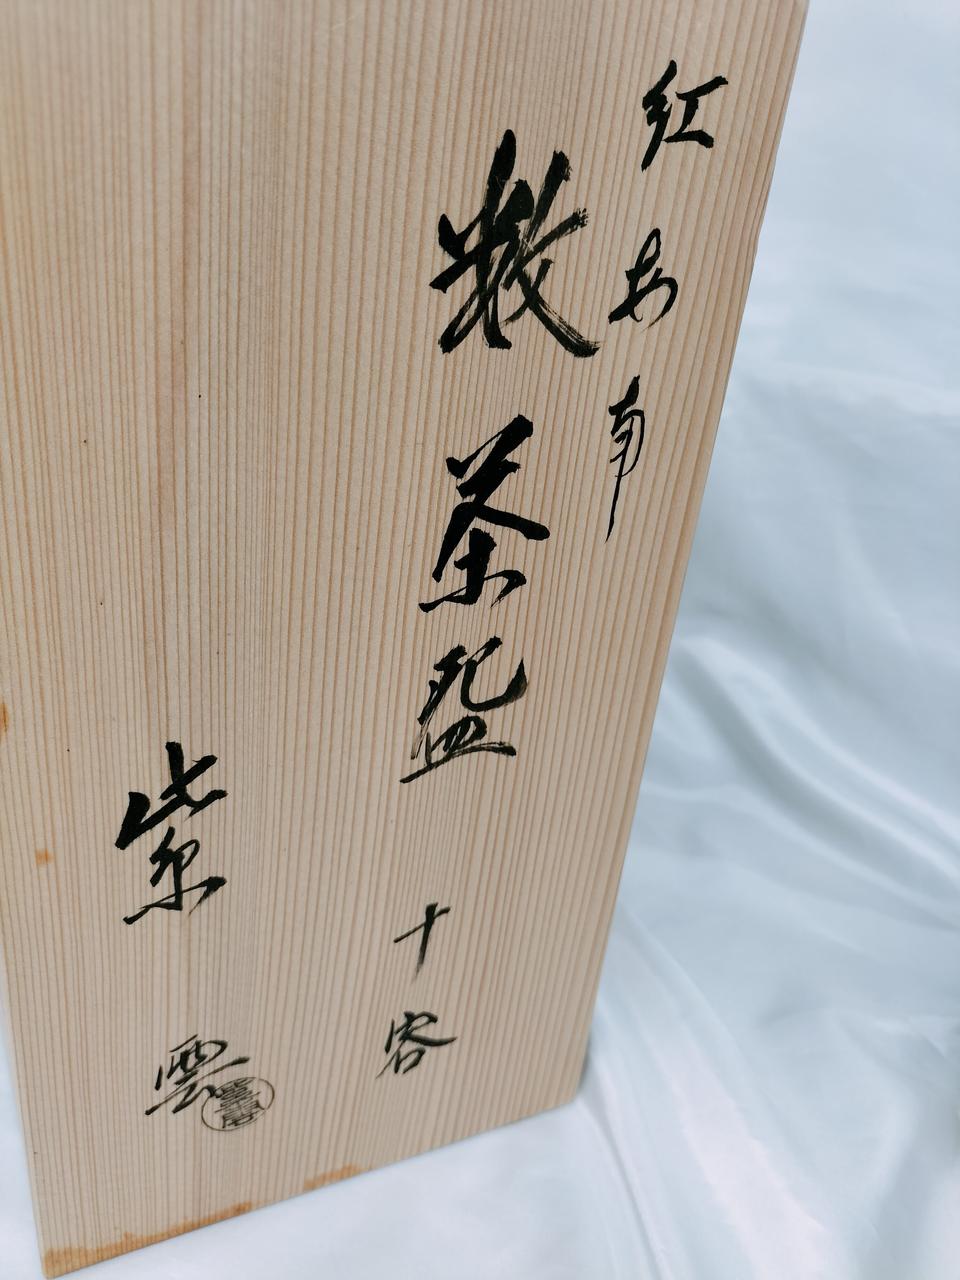 紅安南
数茶盌
十客
紫雲